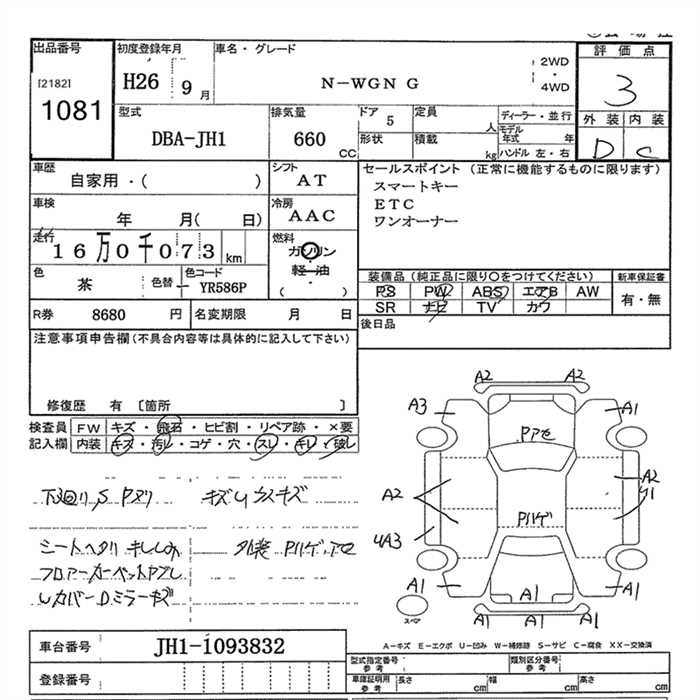 出品番号
[2182]
1081
初度登録年月
H26 9月
車名・グレード
N-WGN G
2WD
・
4WD
評価点
3
外装 内装
D C
型式
DBA-JH1
排気量
660 CC
ドア 5
定員 人
形状
積載 kg
ディーラー・並行
モデル年式 年
ハンドル 左・右
車歴
自家用・( )
シフト
AT
セールスポイント (正常に機能するものに限ります)
スマートキー
ETC
ワンオーナー
車検
年 月( 日)
冷房
AAC
走行
16万0千073 km
燃料
ガソリン
軽・油
・
( )
色
茶
色替
色コード
YR586P
装備品 (純正品に限り○をつけてください)
新車保証書
PS PW ABS エアB AW
有・無
SR ナビ TV カワ
R券 8680 円
名変期限 月 日
後日品
注意事項申告欄(不具合内容等は具体的に記入して下さい)
修復歴 有 [箇所 ]
検査員記入欄
FW キズ・飛石・ヒビ割・リペア跡・×要
内装 キズ・汚レ・コゲ・穴・スレ・キレ・破レ
下廻り S Pヌリ
シートヘタリ
フロアーカーペット
A2 A2
A3 A1
Pアセ
A2
A2
Pハゲ
A1 A1 A1 A1
スペア
車台番号
JH1-1093832
登録番号
A-キズ E-エクボ U-凹み W-補修跡 S-サビ C-腐食 XX-交換済
型式指定番号 参考
類別区分番号 参考
車庫証明用 参考
長さ cm
幅 cm
高さ cm